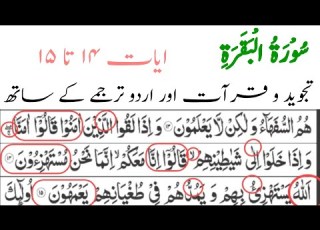 سُوْرَةُ الْبَقَرَةِ
آیات ۱۴ تا ۱۵
تجوید و قرآت اور اردو ترجمے کے ساتھ
هُمُ السُّفَهَآءُ وَلٰكِنْ لَّا يَعْلَمُوْنَ ۝۱۳ وَاِذَا لَقُوا الَّذِيْنَ اٰمَنُوْا قَالُوْٓا اٰمَنَّا
وَاِذَا خَلَوْا اِلٰى شَيٰطِيْنِهِمْ قَالُوْٓا اِنَّا مَعَكُمْ اِنَّمَا نَحْنُ مُسْتَهْزِءُوْنَ ۝۱۴
اَللّٰهُ يَسْتَهْزِئُ بِهِمْ وَيَمُدُّهُمْ فِيْ طُغْيَانِهِمْ يَعْمَهُوْنَ ۝۱۵ اُولٰٓئِكَ